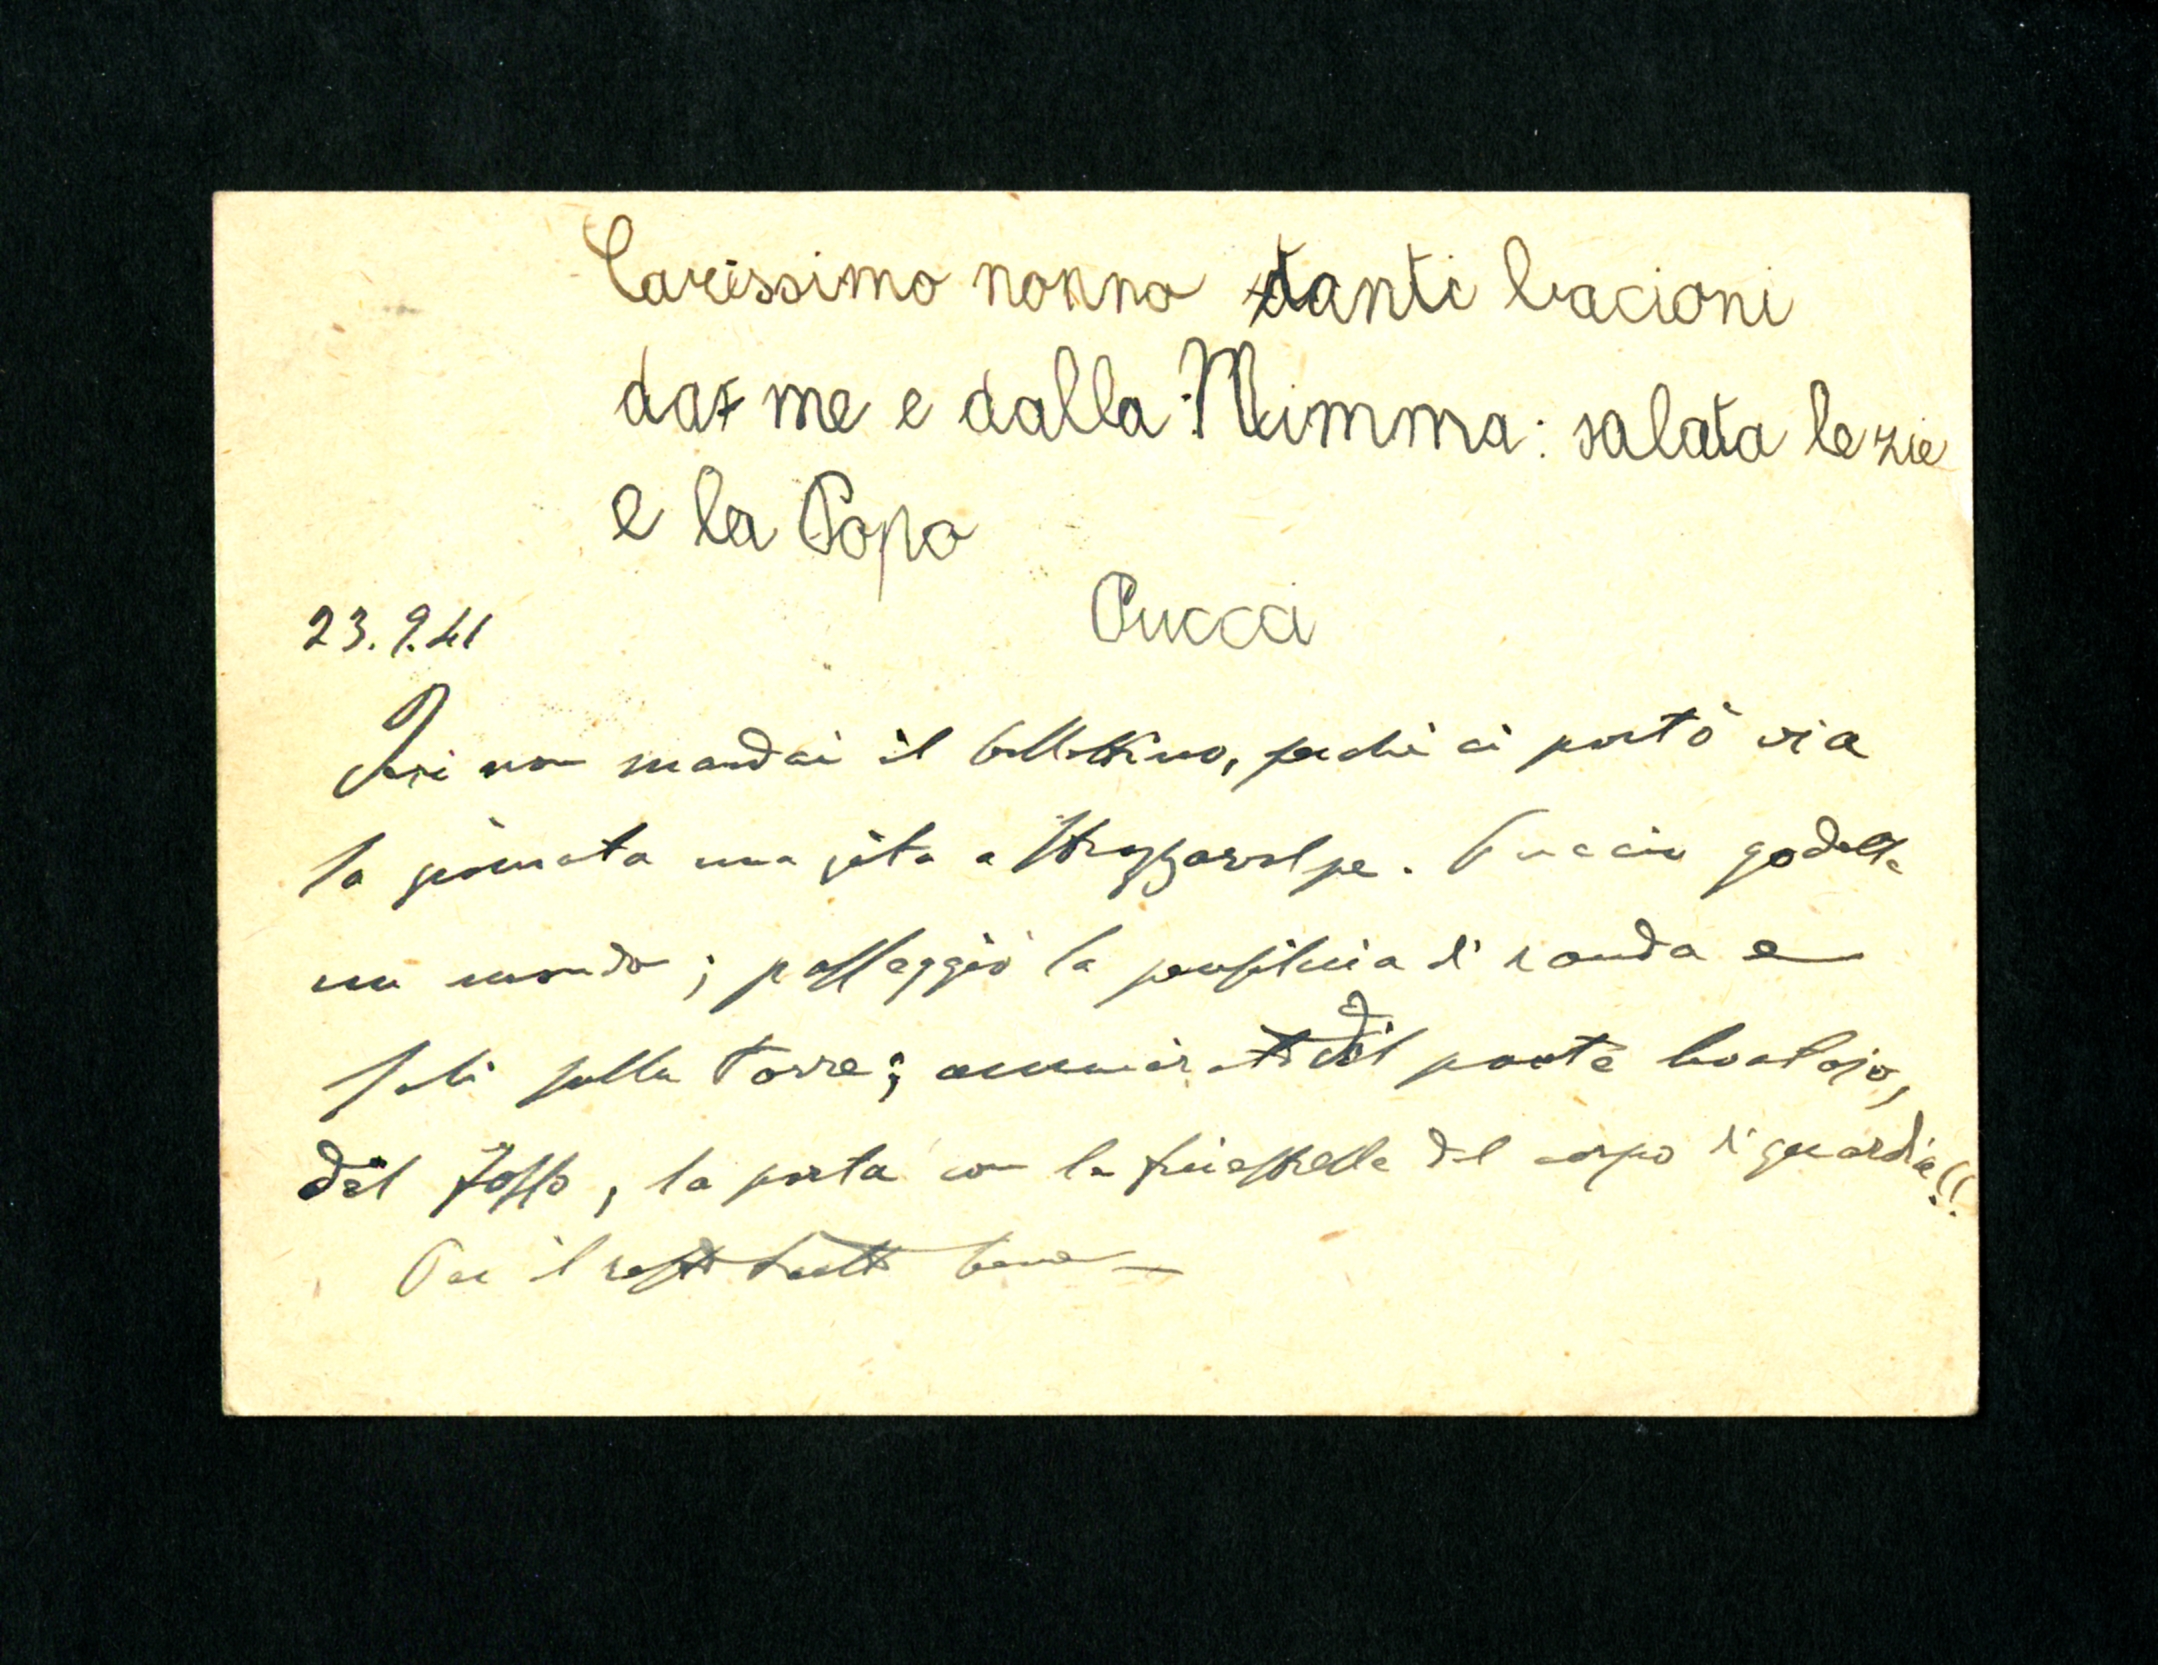 Carissimo nonno tanti bacioni
da me e dalla Mimma: salata le zie
e la Popo
Pucci
23.9.41
Ieri non mandai il bollettino, perchè ci portò via
la giornata una gita a Strozzavolpe. Puccio godette
un mondo; passeggiò la di ronda e
salì sulla torre; del ponte levatojo,
del fosso, la porta con le finestrelle del corpo di guardia!!
Per il resto tutto bene